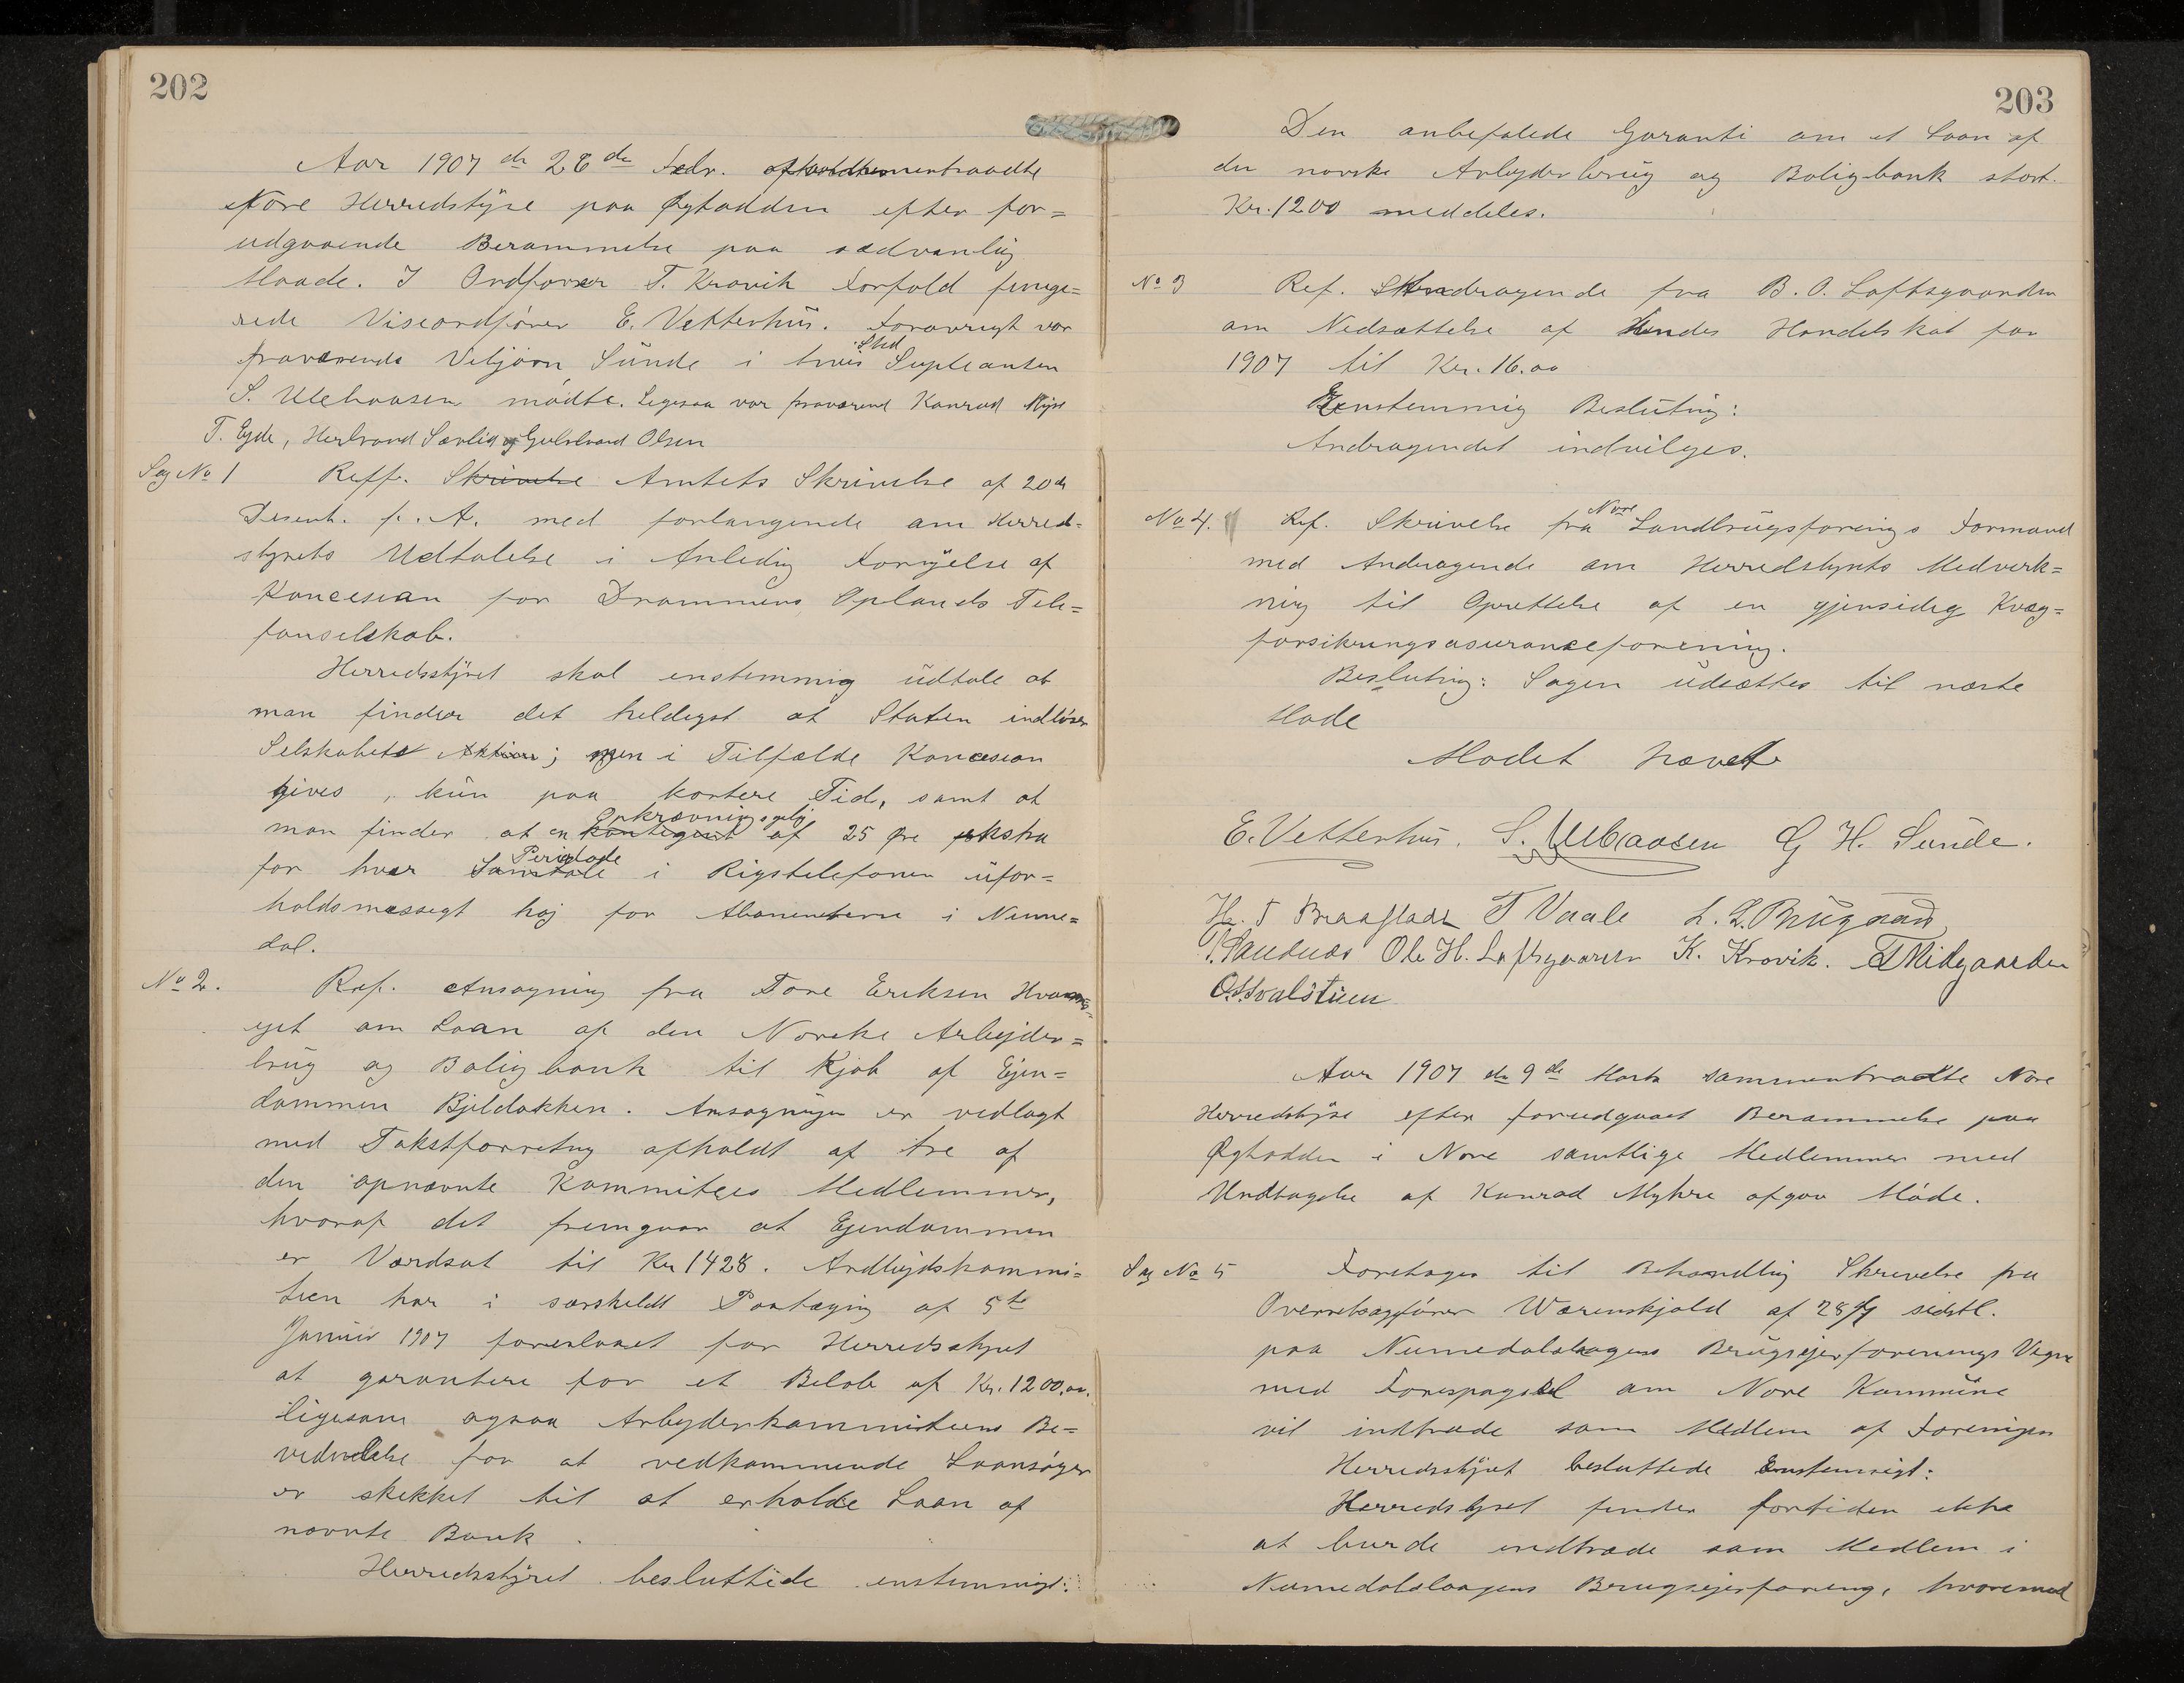 202
Aar 1907 de 28de Febr. sammentraadte
Nore Herredstyre paa Øghodden efter for=
udgaaende Berammelse paa sædvanlig
Maade. I Ordfører T. Kravik Forfald funge=
rede Viseordfører E. Vetterhus. Forøvrigt var
fraværende Vebjørn Sünde i hvis Sted Supleanten
S. Ulehaasen mødte. Ligesaa var fraværend Konrad Myre
T. Eyde, Herbrand Særlid og Gulbrand Olsen
Sag No 1 Reff. Skrivelse Amtets Skrivelse af 20de
Desemb. f. A. med forlangende om Herred=
styrets Udtalelse i Anledig Fornyelse af
Koncesian for Drammens Oplands Tele=
fonselskab.
Herredsstyret skal enstemmig üdtale at
man finder det heldigst at Staten indløser
Selskabets Aktier; men i Tilfælde Koncesion
gives, kün paa kortere Tid, samt at
man finder at en kontigent Opkrævning af 25 Øre ekstra
for hver Samtale Periode i Rigstelefonen üfor=
holdsmæssigt høj for Abonenterne i Nume=
dal.
No 2. Ref. Ansøgning fra Tore Eriksen
om Laan af den Norske Arbejder=
brüg og Boligbank til Kjøb af Ejen=
dommen Bjeldokken. Ansøgningen er vedlagt
med Takstforretng afholdt af tre af
den opnævnte Kommitees Medlemmer,
hvoraf det fremgaar at Ejendommen
er Værdsat til Kr 1428.
har i særskildt Paategnig af 5te
Januar 1907 foreslaaet for Herredsstyret
at garantere for et Beløb af Kr. 1200,00.
ligesom ogsaa Arbejderkommiteens Be=
vidnelse for at vedkommende Laansøger
er skikket til at erholde Laan af
nævnte Bank.
Herredsstyret besluttede enstemmigt:
203
Den anbefalede Garanti om et Laan af
den norske Arbejderbrüg og Boligbank stort
Kr. 1200 meddeles.
No 3 Ref. Andragende fra B. O. Loftsgaarden
om Nedsættelse af Hendes Handelskat for
1907 til Kr. 16.00
Eenstemmig Beslütnig:
Andragendet indvilges.
No 4. Ref. Skrivelse fra Nore Landbrügsforenigs Formand
med Andragende om Herredstyrets Medvirk=
nig til Oprettelse af en gjensidig Kvæg=
forsikringsasuranceforening.
Beslutnig: Sagen üdsættes til næste
Møde
Mødet hævet
E. Vetterhus. S. Ulehaasen G H. Sünde.
H. T Braafladt T Vaale
Ole H. Loftsgaarden K. Kravik. T Midgaarden
Aar 1907 de 9de Marts sammentraadte Nore
Herredstyre efter forudgaaet Berammelse paa
Øghodden i Nore samtlige Medlemmer med
Undtagelse af Konrad Myhre afgav Møde.
Sag No 5 Foretages til Behandlig Skrivelse fra
Overretsagfører Wærenskjold af sidstl.
paa Numedalslaagens Brügsejerforenings Vegne
med Forespørgsel om Nore Kommüne
vil indtræde som Medlem af Foreningen
Herredsstyret besluttede Enstemmigt:
Herredstyret finder fortiden ikke
at burde indtræde som Medlem i
Numedalslaagens Brugsejerforening, hvoremod